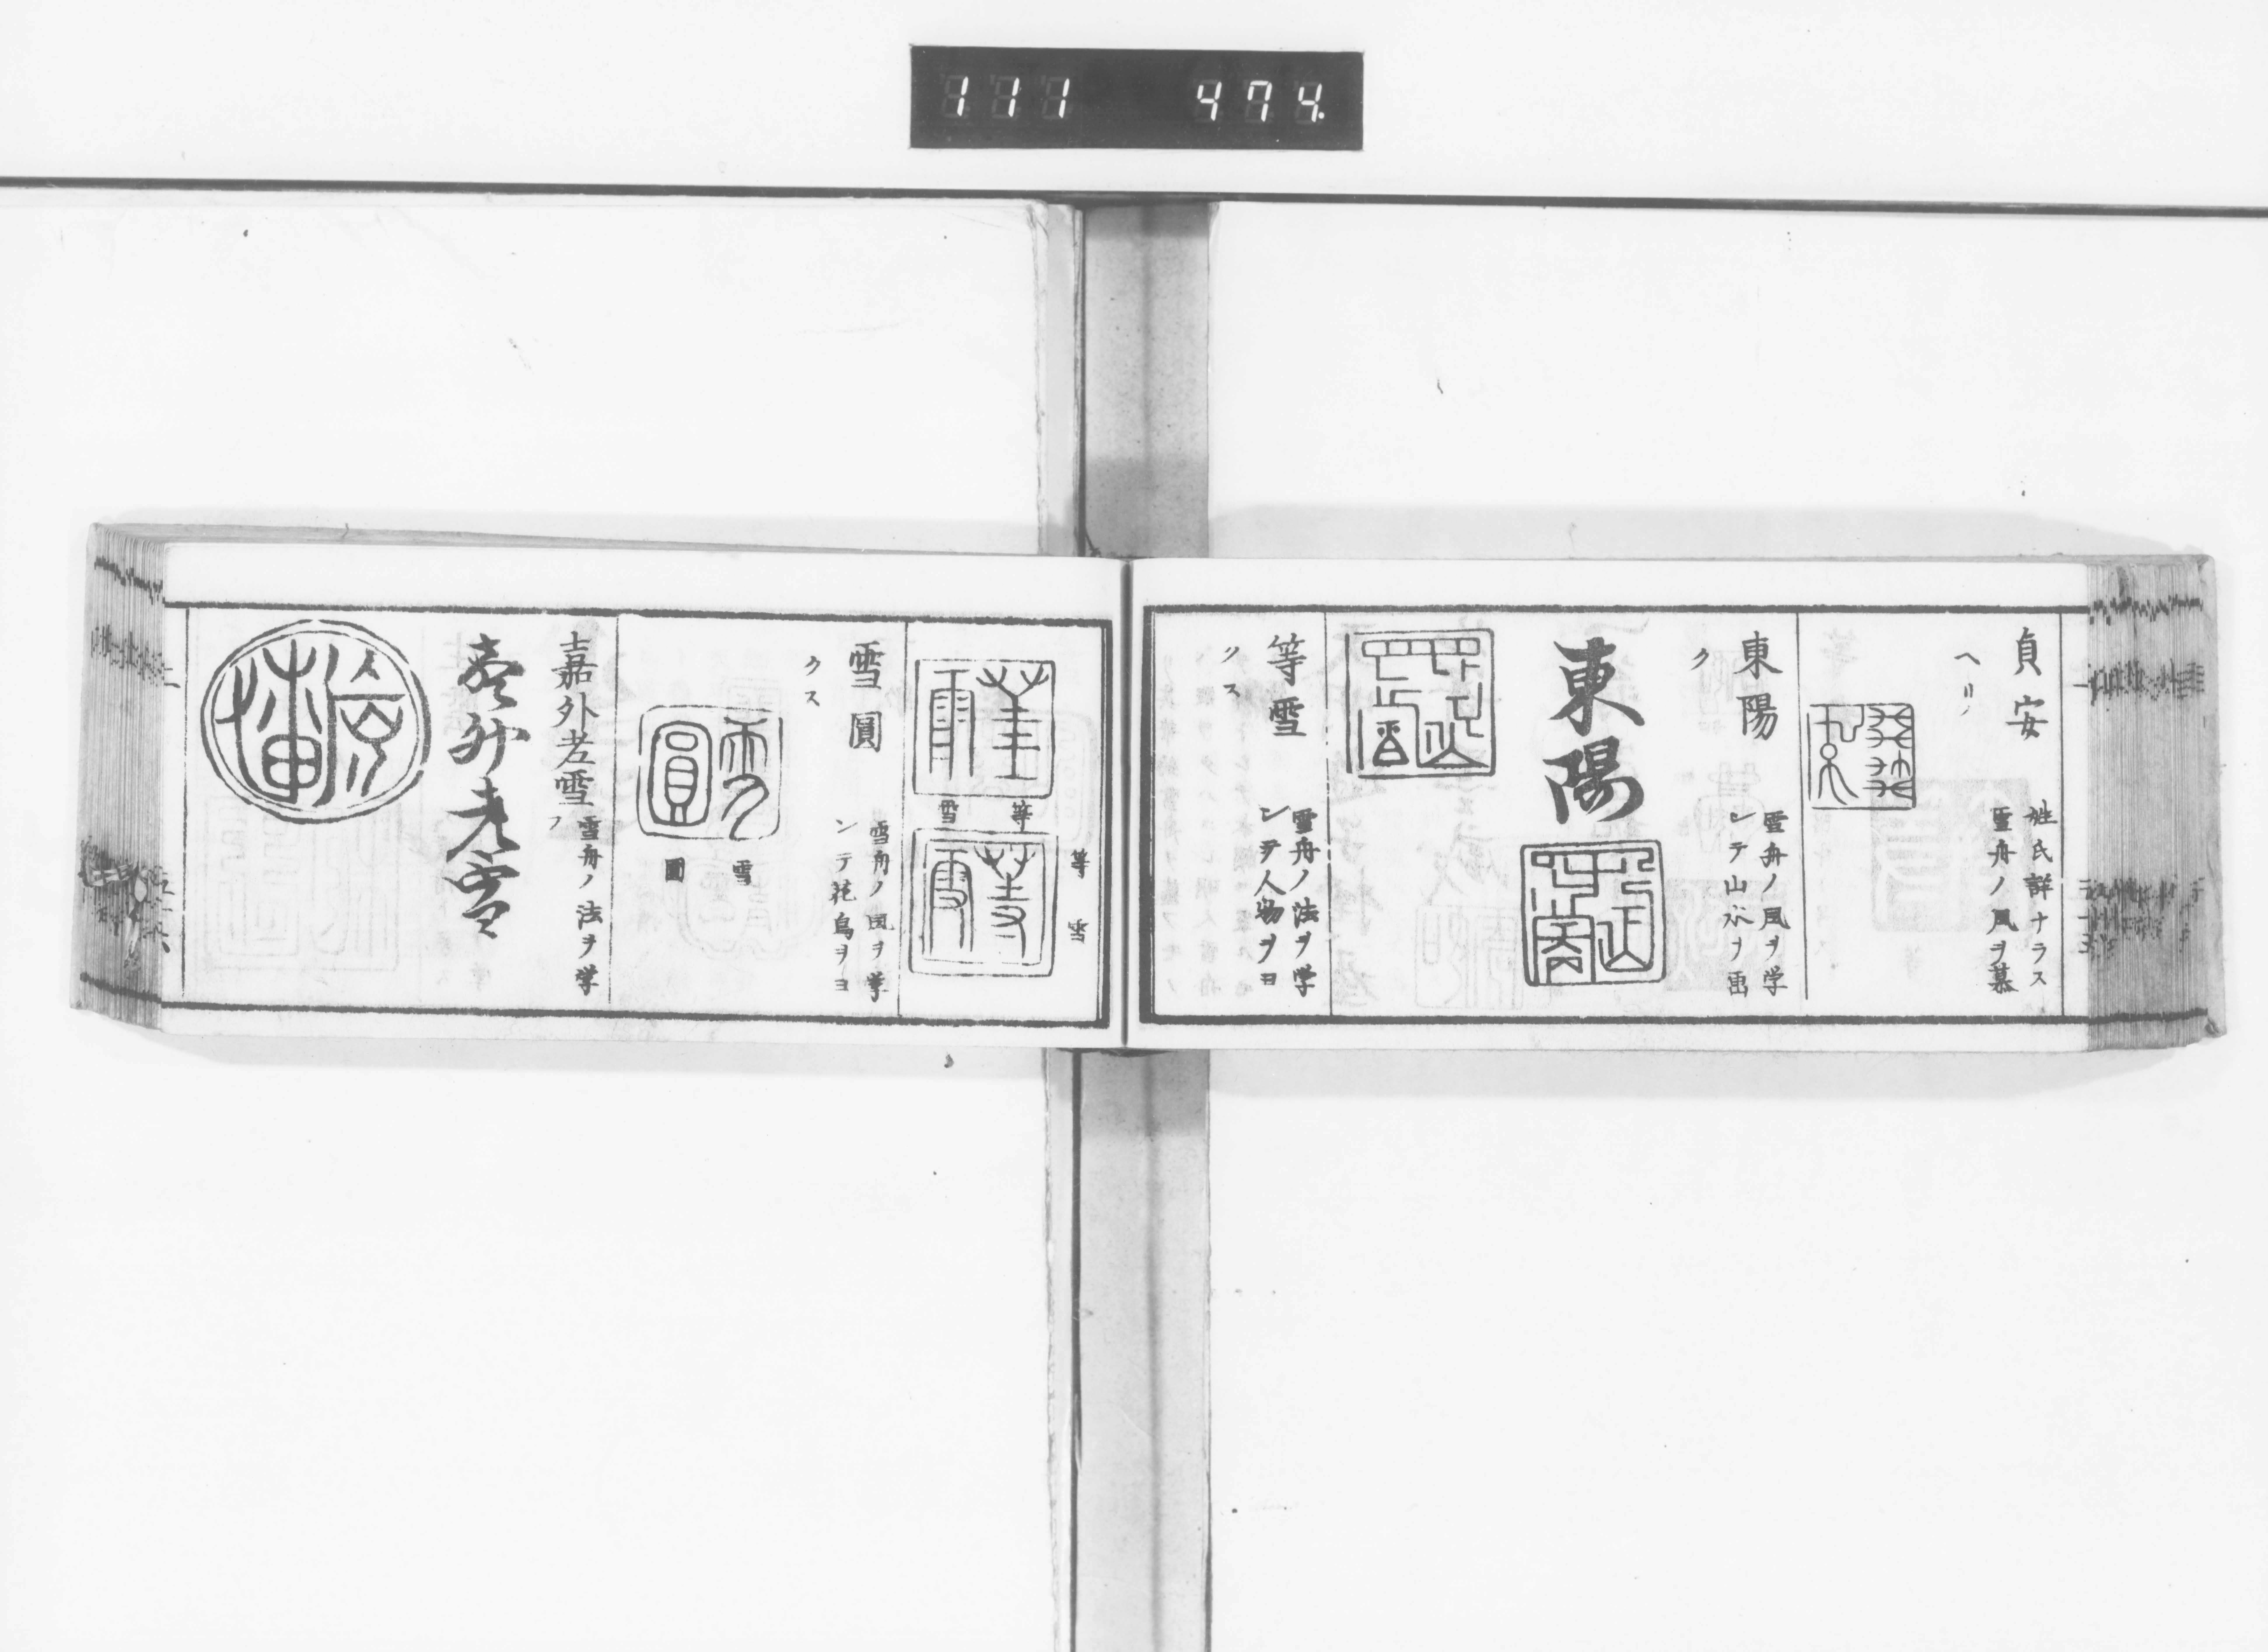 111 474.
貞安
姓氏詳ナラス
雪舟ノ風ヲ慕
ヘリ
東陽
雪舟ノ風ヲ学
ンテ山水ヲ画
ク
東陽
等雪
雪舟ノ法ヲ学
ンテ人物ヲヨ
クス
等雪
等
雪
雪圓
雪舟ノ風ヲ学
ンテ花鳥ヲヨ
クス
雪
圓
嘉外老雪
雪舟ノ法ヲ学
フ